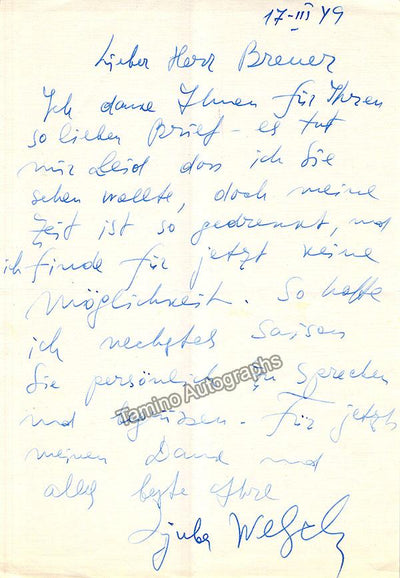 17-III 49
Lieber Herr Breuer
Ich danke Ihnen für Ihren
so lieben Brief – es tut
mir Leid dass ich Sie
sehen wollte, doch meine
Zeit ist so gedrenkt, und
ich finde für jetzt keine
Möglichkeit. So hoffe
ich nechstes Saison
Sie persönlich zu sprechen
Tamino Autographs
und – Für jetzt
meinen Dank und
alles beste Ihre
Ljuba Welsch